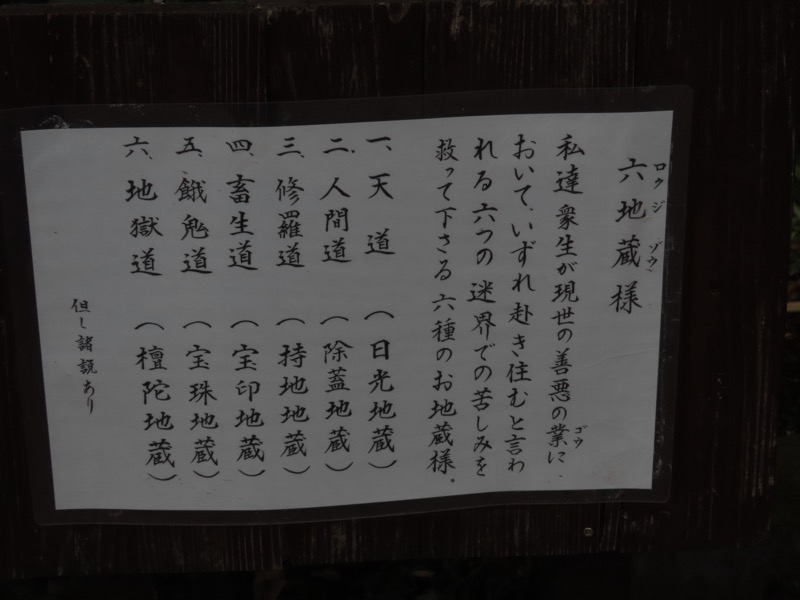 六地蔵様
ロクジゾウ
私達衆生が現世の善悪の業に、
ゴウ
おいて、いずれ赴き住むと言わ
れる六つの迷界での苦しみを
救って下さる六種のお地蔵様。
一、天道（日光地蔵）
二、人間道（除蓋地蔵）
三、修羅道（持地地蔵）
四、畜生道（宝印地蔵）
五、餓鬼道（宝珠地蔵）
六、地獄道（檀陀地蔵）
但し諸説あり